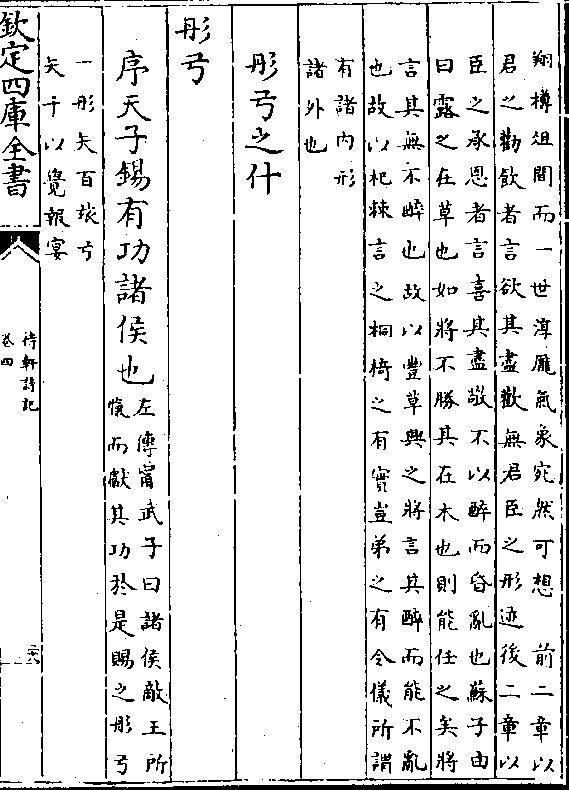 翔樽俎間而一世淳龎氣象宛然可想　前二章以
君之勸飲者言欲其盡歡無君臣之形迹後二章以
臣之承恩者言喜其盡敬不以醉而昏亂也蘇子由
曰露之在草也如將不勝其在木也則能任之矣將
言其無不醉也故以豐草興之將言其醉而能不亂
也故以杞棘言之桐椅之有實豈弟之有令儀所謂
有諸内形
諸外也
彤弓之什
彤弓
序天子錫有功諸侯也
左傳甯武子曰諸侯敵王所
愾而獻其功於是賜之彤弓
一彤矢百玈弓
矢千以覺報宴
欽定四庫全書
待軒詩記
卷四
二十八